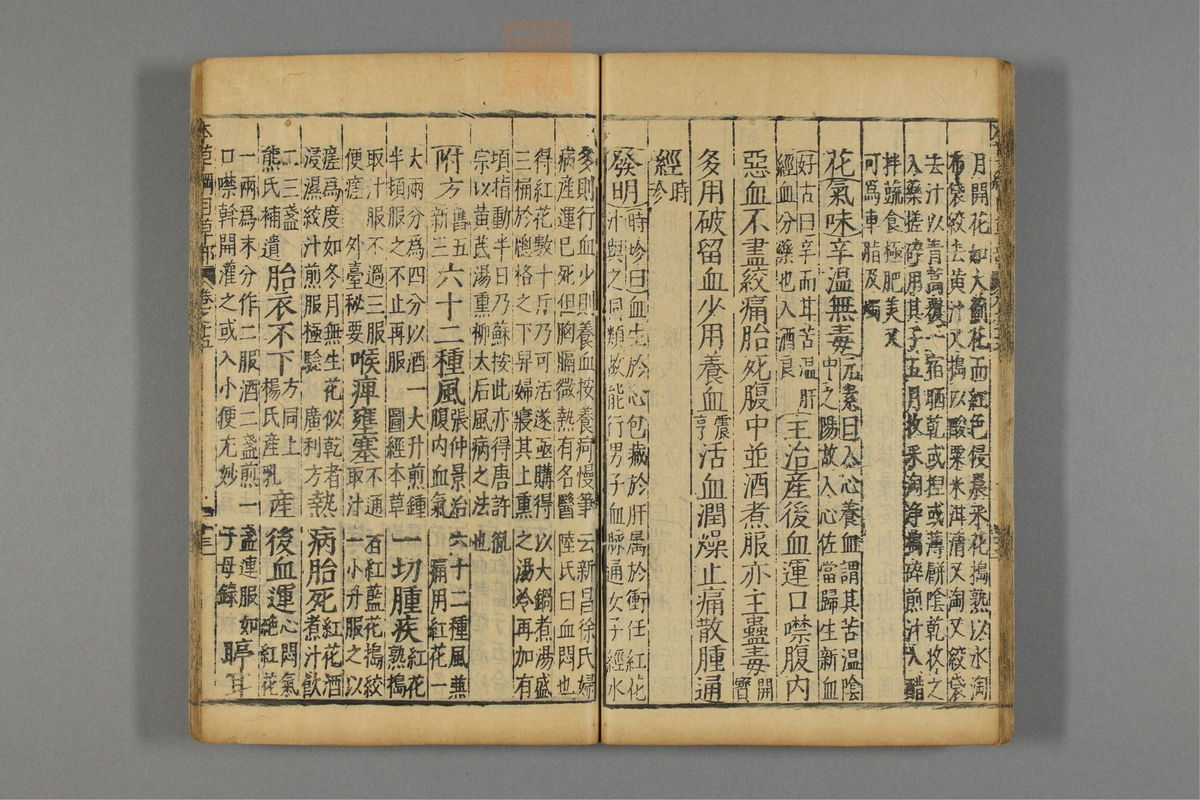 月開花如大薊花而紅色侵晨采花搗熟以水淘
布袋絞去黄汁又搗以酸粟米泔清又淘又絞袋
去汁以青蒿覆一宿晒乾或捏或薄餅陰乾收之
入藥搓碎用其子五月收采淘淨搗碎煎汁入醋
拌蔬食極肥美又
可爲車脂及燭
花氣味辛温無毒元素曰入心養血謂其苦温陰
中之陽故入心佐當歸生新血
好古曰辛而甘苦温肝
經血分藥也入酒良
主治産後血運口噤腹内
惡血不盡絞痛胎死腹中並酒煮服亦主蠱毒開寳
多用破留血少用養血震亨活血潤燥止痛散腫通
經時珍
發明時珍曰血生於心包藏於肝屬於衝任紅花
汁與之同類故能行男子血脉通女子經水
多則行血少則養血按養疴慢筆云新昌徐氏婦
病産運已死但胸膈微熱有名醫陸氏曰血悶也
得紅花數十斤乃可活遂亟購得以大鍋煮湯盛
三桶於牕格之下舁婦寢其上熏之湯冷再加有
頃指動半日乃蘇按此亦得唐許胤
宗以黄芪湯熏柳太后風病之法也
附方舊五新三六十二種風張仲景治六十二種風兼
腹内血氣刺痛用紅花一
大兩分爲四分以酒一大升煎鍾
半頓服之不止再服 圖經本草
一切腫疾紅花熟搗
取汁服不過三服
便瘥 外臺秘要
喉痺壅塞不通者紅藍花搗絞
取汁一小升服之以
瘥爲度如冬月無生花以乾者
浸濕絞汁煎服極驗 廣利方
熱病胎死紅花酒煮汁飲
二三盞
熊氏補遺
胎衣不下方同上
楊氏産乳
産後血運心悶氣絶紅花
一兩爲末分作二服酒二盞煎一盞連服如
口噤斡開灌之或入小便尤妙 子母録
聤耳
本草綱目草部